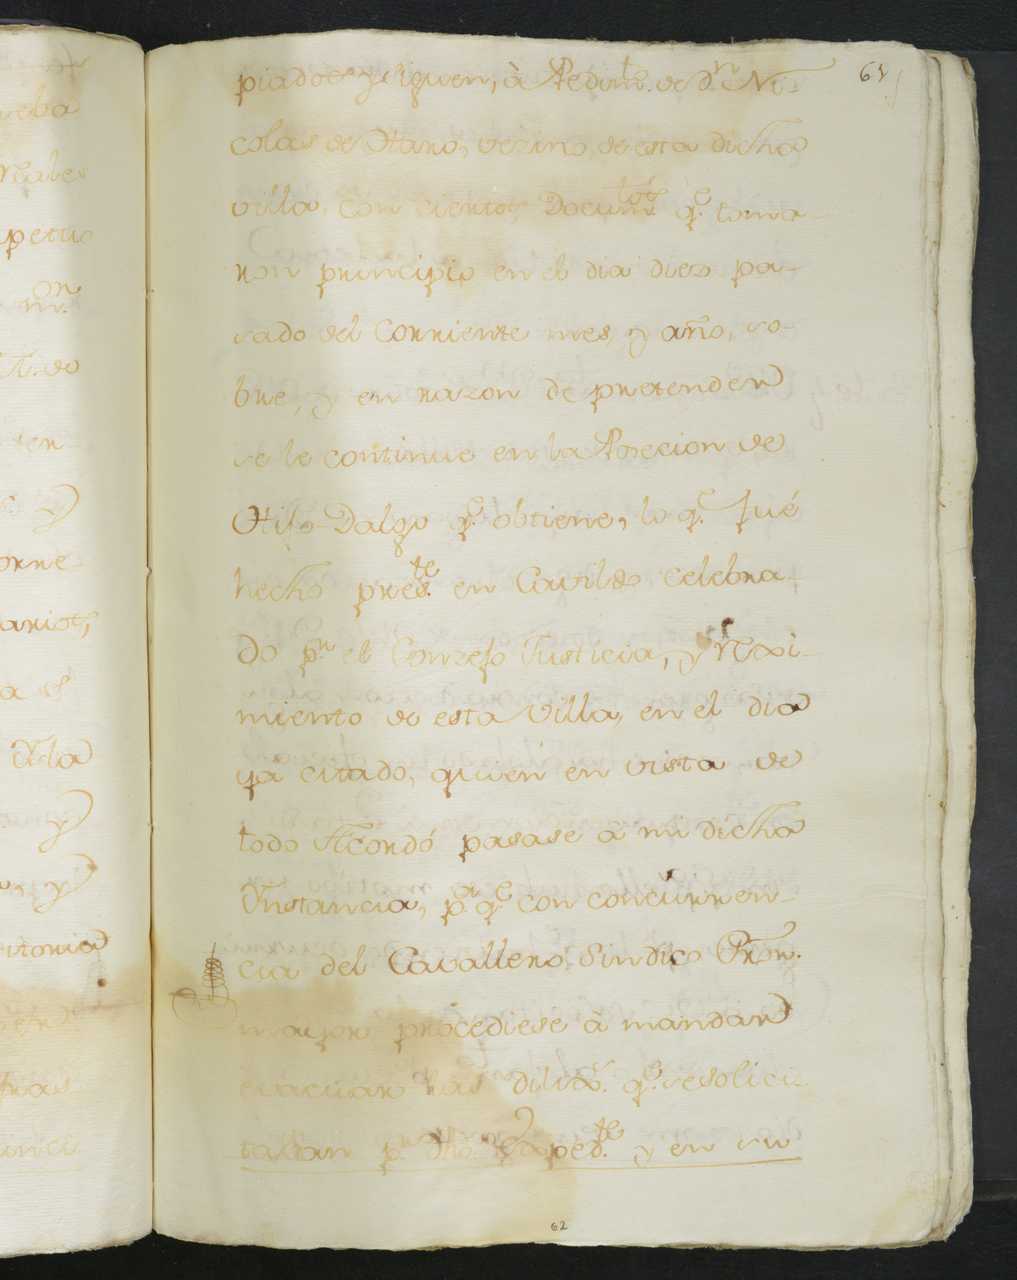 61
piados y siguen, à Pedimto. de Dn. Ni-
colas de Haro, vezino de esta dicha
villa, con ciertos Documtos. qe. toma-
ron principio en el dia diez pa-
sado del Corriente mes, y año, so-
bre, y en razon de pretender
se le continue en la Posecion de
Hijo-Dalgo qe. obtiene, lo qe. fué
hecho preste. en Cavildo celebra-
do pr. el Conzejo Justicia, y Rexi-
miento de esta Villa, en el dia
ya citado, quien en vista de
todo Acordó pasase à mi dicha
Instancia, pa. qe. con concurren-
cia del Cavallero Sindico Pror.
mayor procediese à mandar
evacuar las dilixs. qe. se solici-
taban pr. dho. Expedte. y en su
62